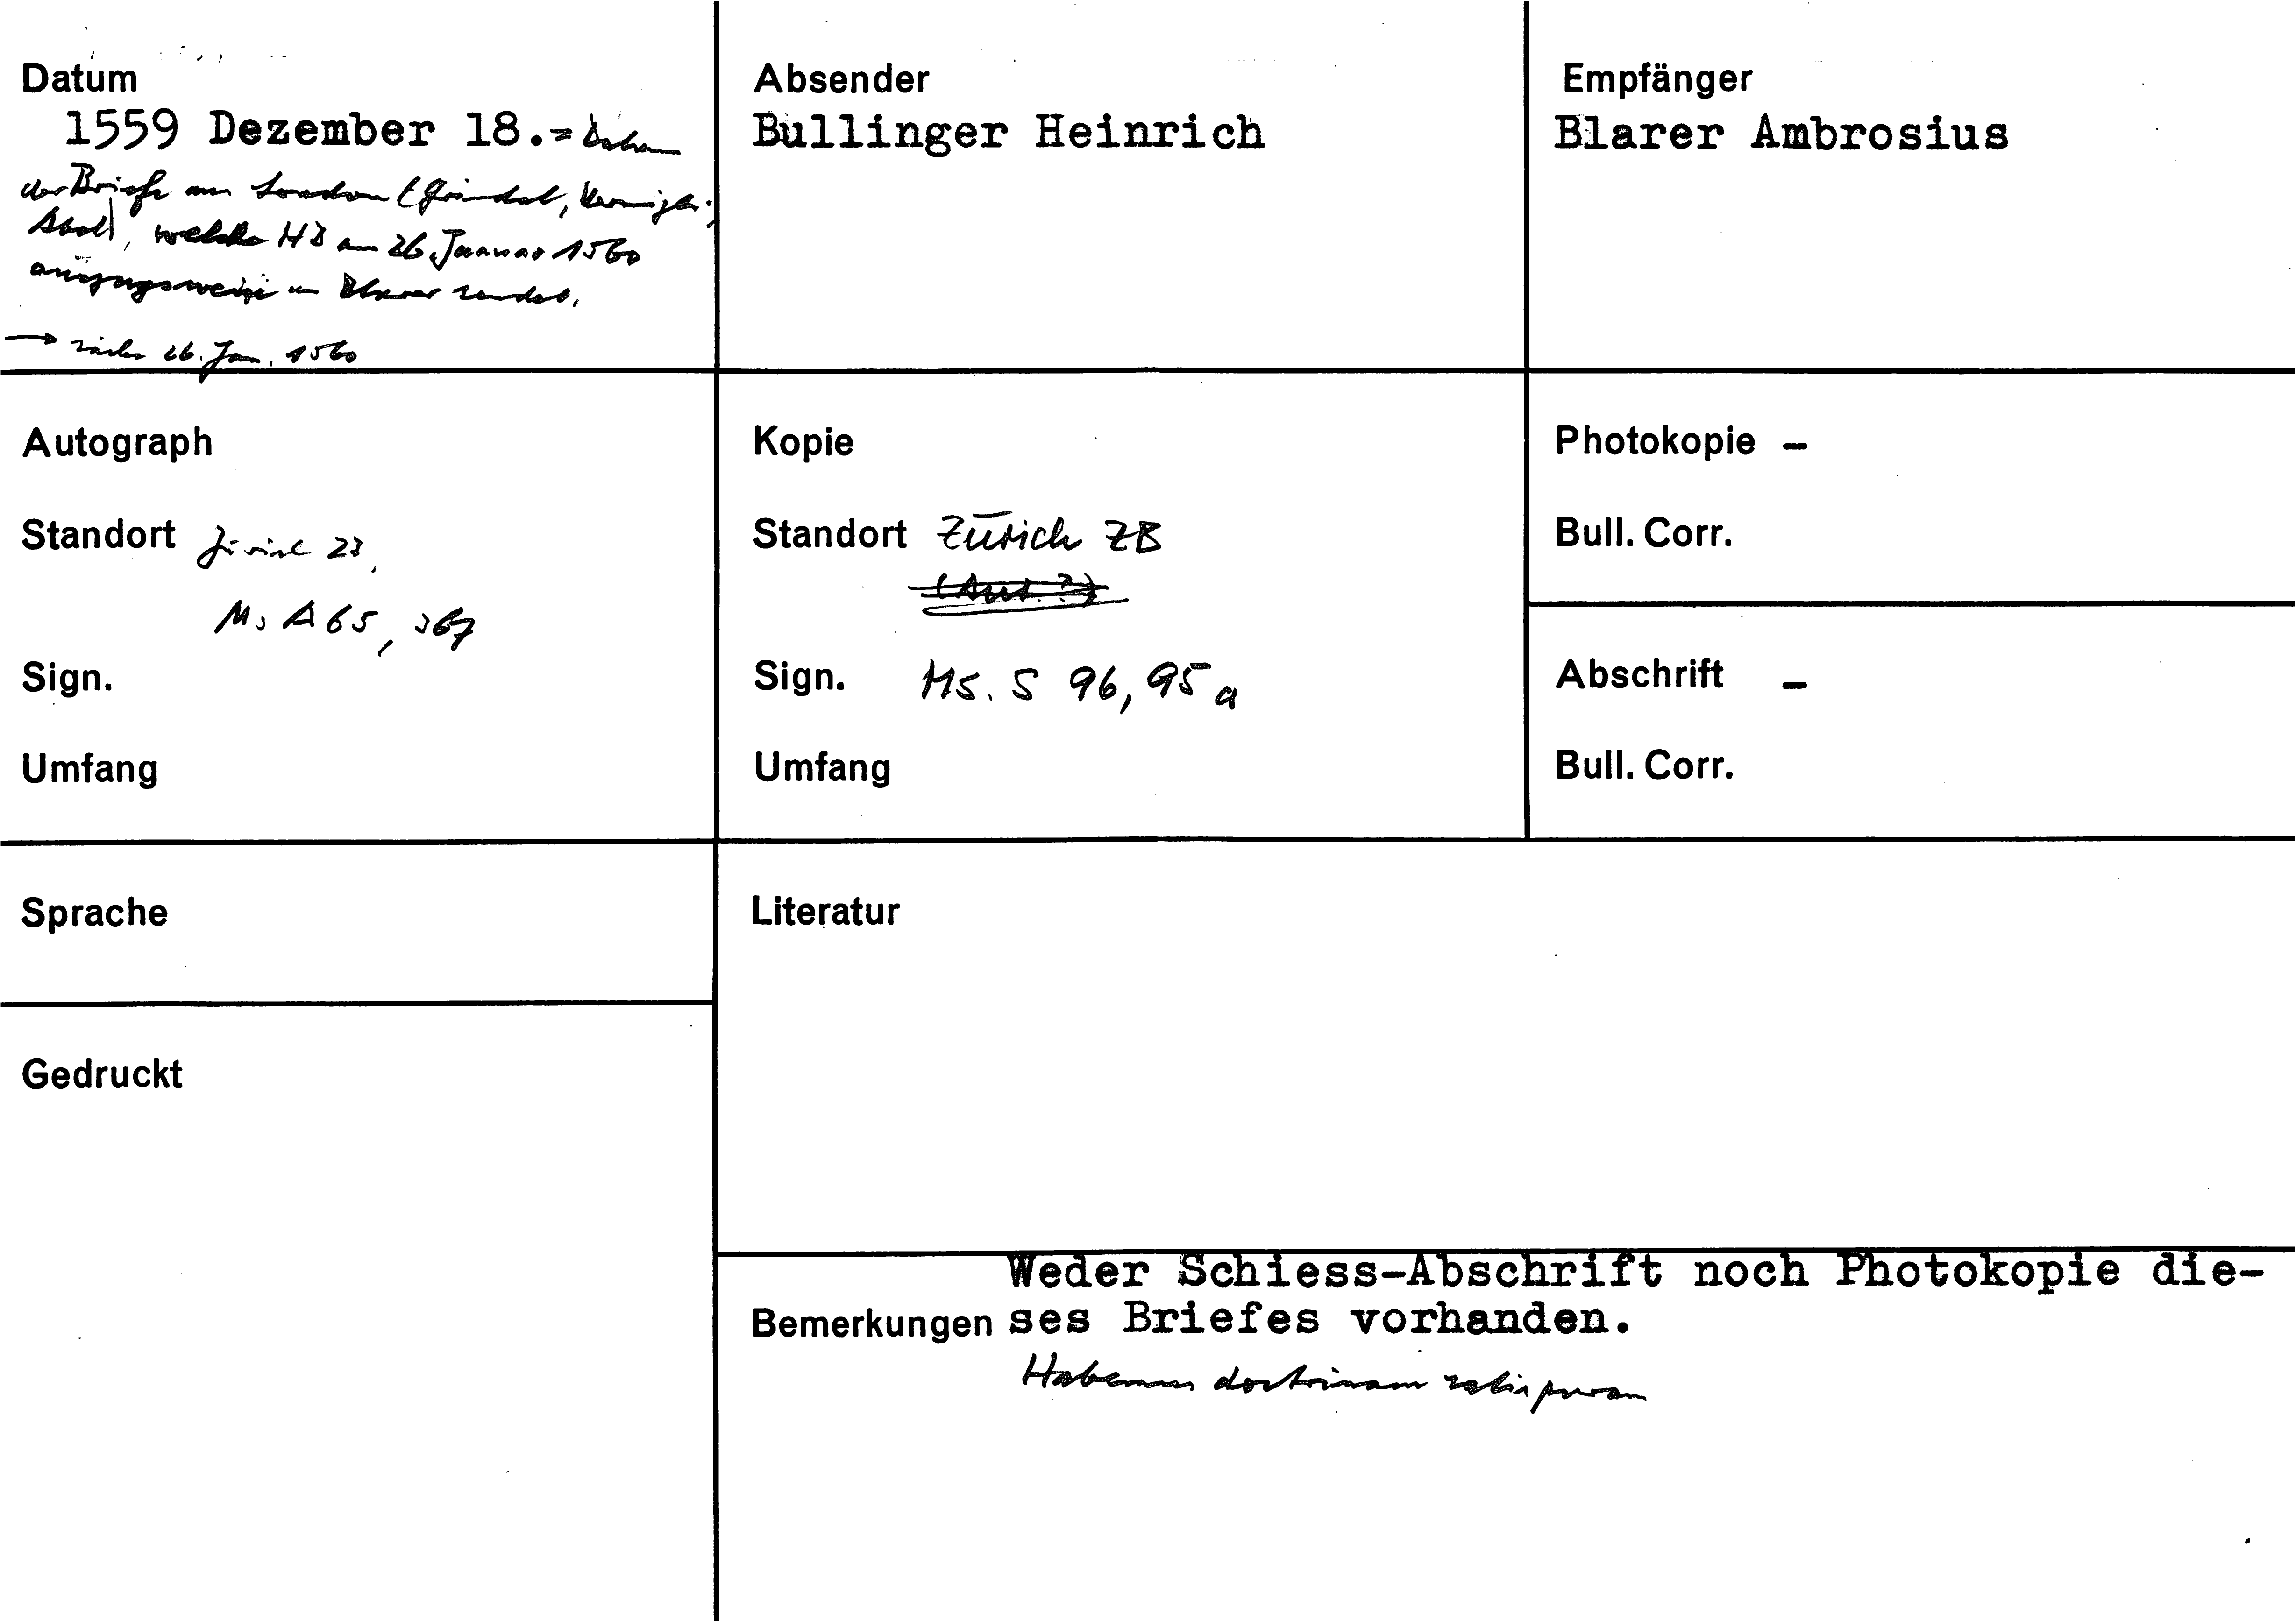 Datum
1559 Dezember 18. = Datum
der Briefe aus London (Grindal,
welche HB am 26. Januar 1560
auszugsweise an Blarer sendet.
→ siehe 26. Jan. 1560
Absender
Bullinger Heinrich
Empfänger
Blarer Ambrosius
Autograph
Standort Zürich
Ms A 65, 367
Sign.
Umfang
Kopie
Standort Zürich ZB
(Aut.?)
Sign. Ms. S 96, 95 a
Umfang
Photokopie –
Bull. Corr.
Abschrift –
Bull. Corr.
Sprache
Literatur
Gedruckt
Weder Schiess-Abschrift noch Photokopie die-
Bemerkungen ses Briefes vorhanden.
Habemus doctrinam satis puram